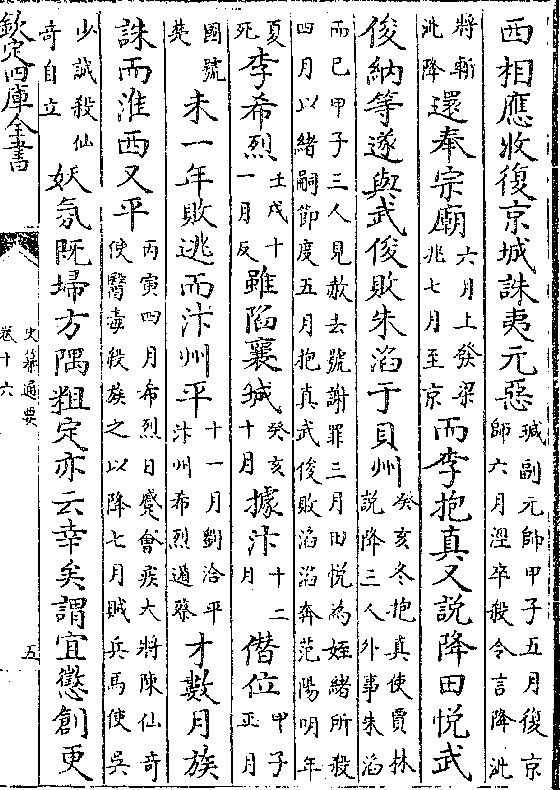 西相應收復京城誅夷元惡瑊副元帥甲子五月復京師六月涇卒殺令言降泚
將斬泚降還奉宗廟六月上發梁兆七月至京而李抱真又說降田悅武
俊納等遂與武俊敗朱滔于貝州癸亥冬抱真使賈林說降三人外事朱滔
而已甲子三人見赦去號謝罪三月田悅為姪緒所殺四月以緒嗣節度五月抱真武俊敗滔滔奔范陽明年
夏死李希烈壬戌十一月反雖陷襄城癸亥十月據汴十二月僭位甲子正月
國號楚未一年敗逃而汴州平十一月劉洽平汴州希烈遁蔡才數月族
誅而淮西又平丙寅四月希烈日蹙會疾大將陳仙奇使醫毒殺族之以降七月賊兵馬使吳
少誠殺仙奇自立妖氛既埽方隅粗定亦云幸矣謂宜懲創更
欽定四庫全書
史纂通要
卷十六
五